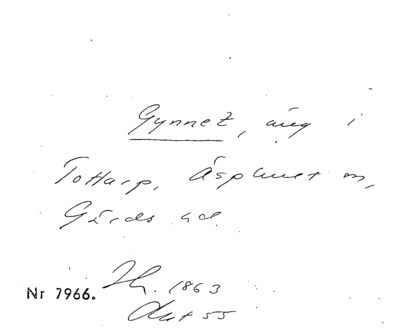 Gynnet, äng i
Tottarp, Äsphult sn,
Gärds hd.
Nr 7966.
1863
Akt 55